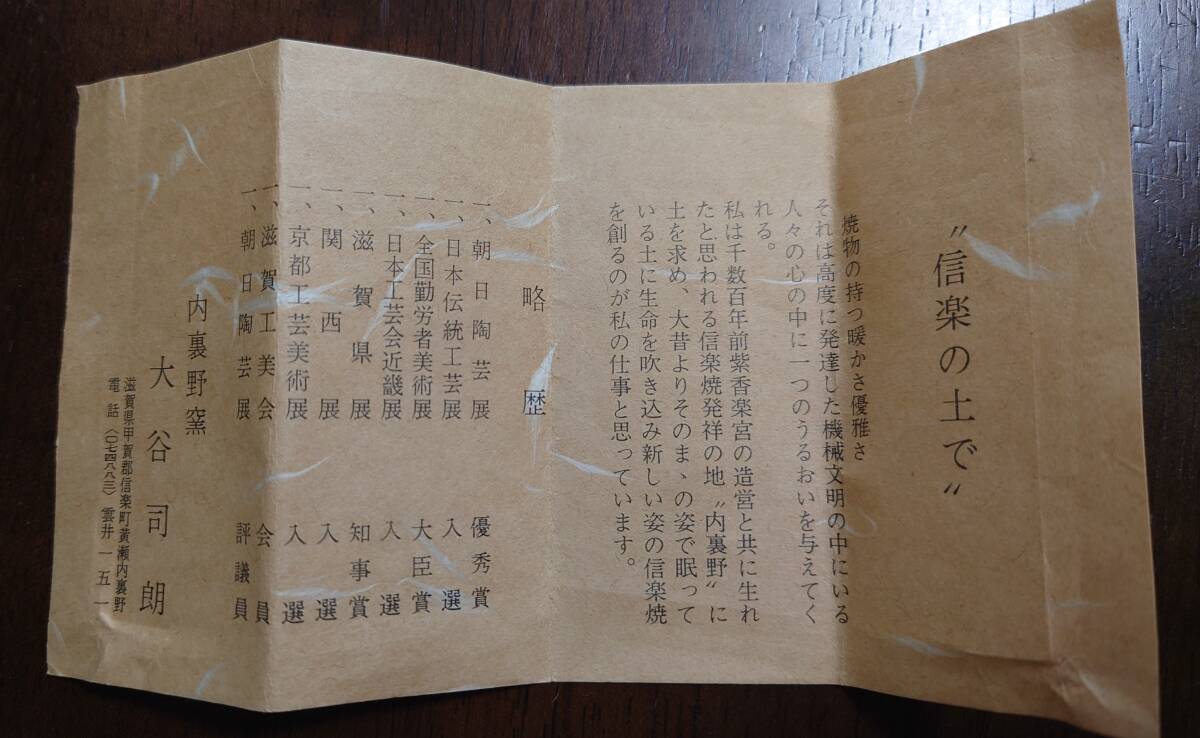 〝信楽の土で〟
焼物の持つ暖かさ優雅さ
それは高度に発達した機械文明の中にいる
人々の心の中に一つのうるおいを与えてく
れる。
私は千数百年前紫香楽宮の造営と共に生れ
たと思われる信楽焼発祥の地〝内裏野〟に
土を求め、大昔よりそのまゝの姿で眠って
いる土に生命を吹き込み新しい姿の信楽焼
を創るのが私の仕事と思っています。
略歴
一、朝日陶芸展 優秀賞
一、日本伝統工芸展 入選
一、全国勤労者美術展 大臣賞
一、日本工芸会近畿展 入選
一、滋賀県展 知事賞
一、関西展 入選
一、京都工芸美術展 入選
一、滋賀工美会 会員
一、朝日陶芸展 評議員
内裏野窯
大谷司朗
滋賀県甲賀郡信楽町黄瀬内裏野
電話〈〇七四八八三〉雲井一五一